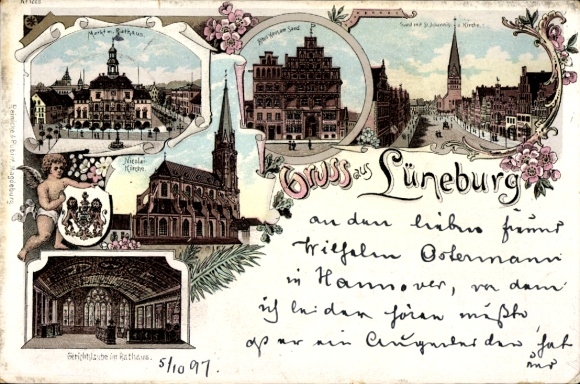 Markt m. Rathaus.
Sand mit St. Johannis-Kirche.
Nicolai
Kirche.
Gruss aus Lüneburg
Gerichtslaube im Rathaus.
an den lieben Freund
Wilhelm Ostermann
in Hannover, von dem
ich leider hören mußte,
daß er ein Augenleiden hat
5/10 97.